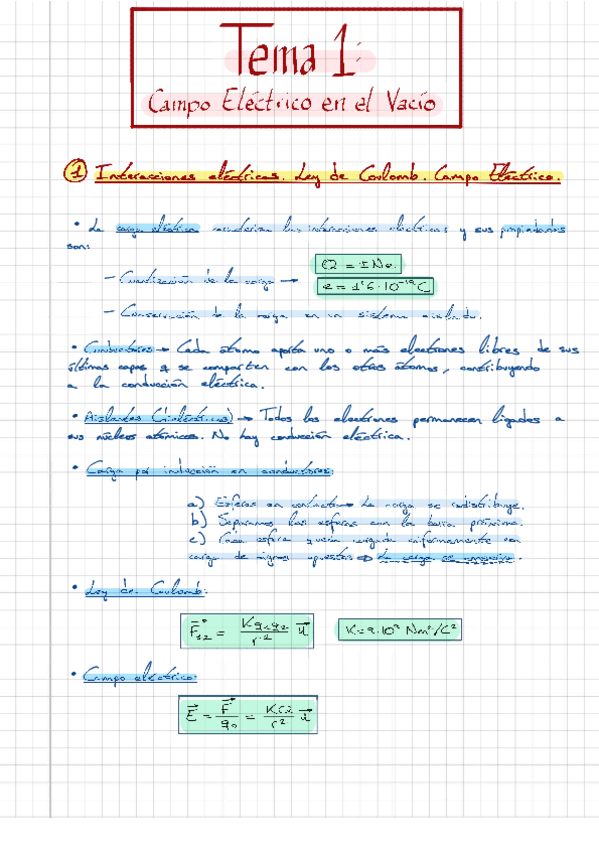 Tema 1:
Campo Eléctrico en el Vacío
1 Interacciones eléctricas. Ley de Coulomb. Campo Eléctrico.
• La carga eléctrica caracteriza las interacciones eléctricas y sus propiedades
son:
– Cuantización de la carga → Q = ± Ne.
e = 1'6·10⁻¹⁹ C
– Conservación de la carga en un sistema aislado.
• Conductores → Cada átomo aporta uno o más electrones libres de sus
últimas capas q se comparten con los otros átomos, contribuyendo
a la conducción eléctrica.
• Aislantes (dieléctricos) → Todos los electrones permanecen ligados a
sus núcleos atómicos. No hay conducción eléctrica.
• Carga por inducción en conductores:
a) Esferas en contacto → La carga se redistribuye.
b) Separamos las esferas con la barra próxima.
c) Cada esfera queda cargada uniformemente con
carga de signos opuestos ⇒ La carga se conserva.
• Ley de Coulomb:
F⃗₁₂ = K q₁q₂ / r² u⃗ K=9·10⁹ Nm²/C²
• Campo eléctrico:
E⃗ = F⃗ / q₀ = KQ / r² u⃗